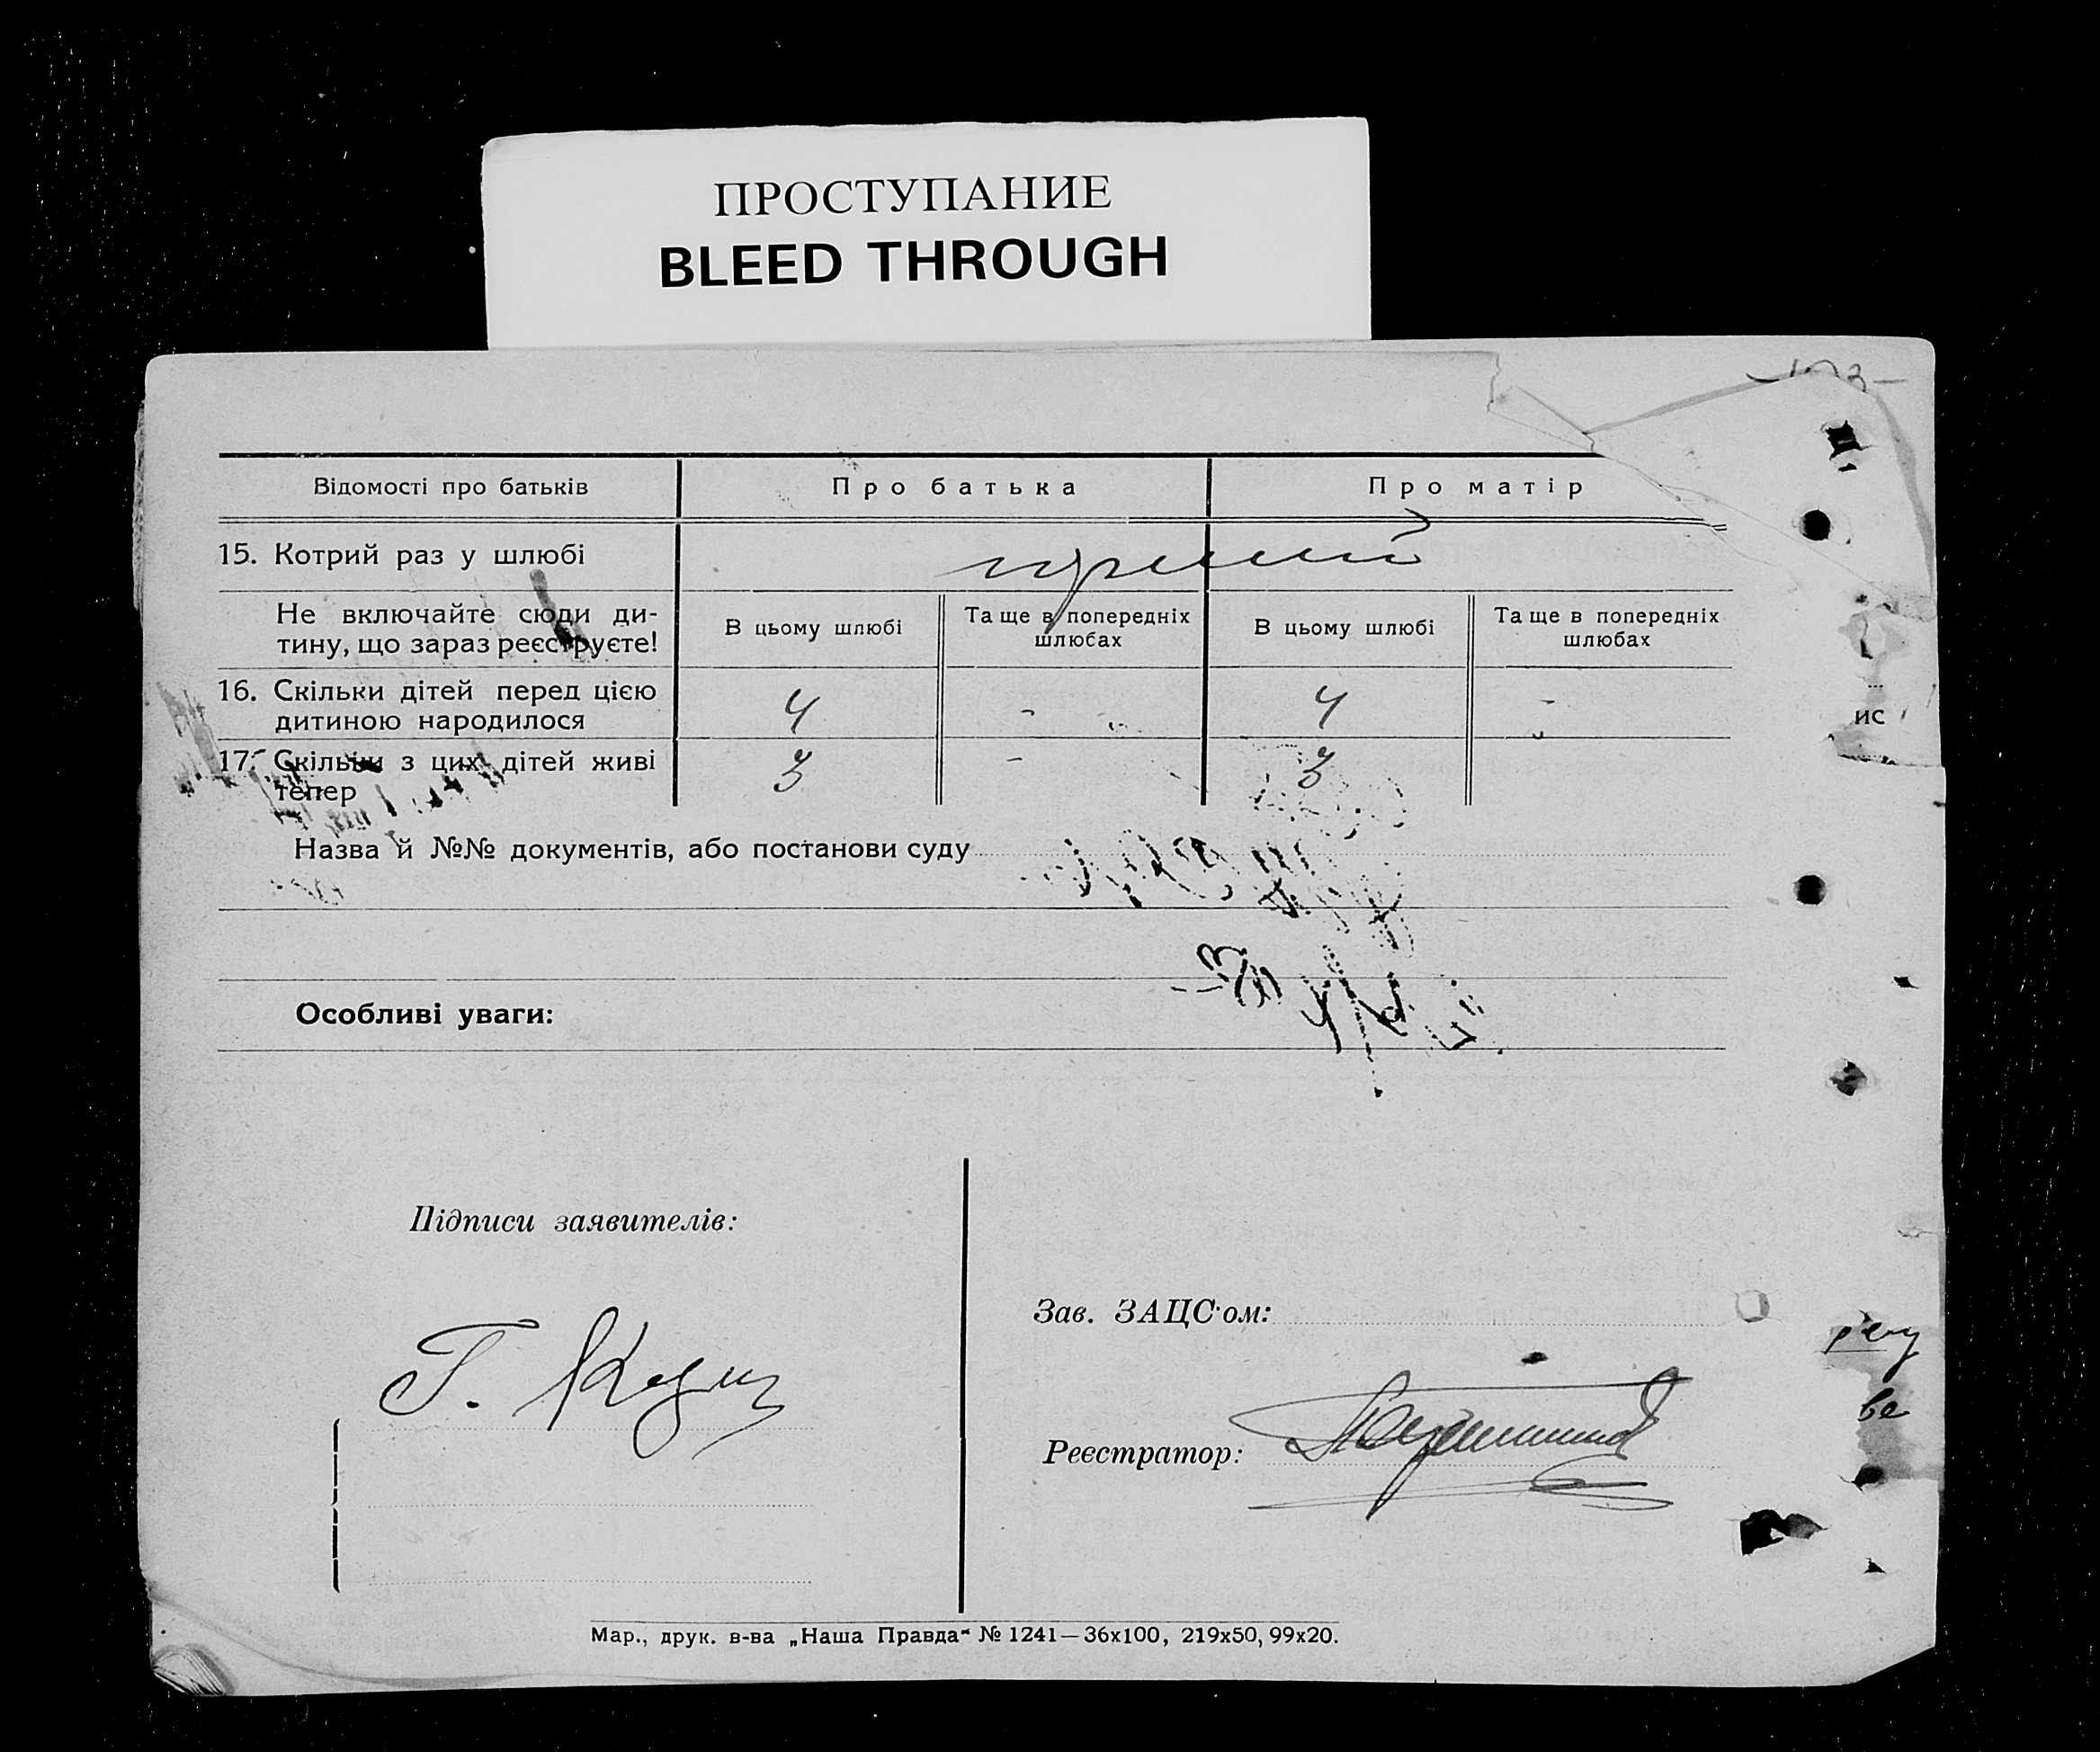 ПРОСТУПАНИЕ
BLEED THROUGH
Відомості про батьків
Про батька
Про матір
15. Котрий раз у шлюбі
Не включайте сюди ди-
тину, що зараз реєструєте!
В цьому шлюбі
Та ще в попередніх
шлюбах
В цьому шлюбі
Та ще в попередніх
шлюбах
16. Скільки дітей перед цією
дитиною народилося
4
-
4
-
17. Скільки з цих дітей живі
тепер
3
-
3
Назва й №№ документів, або постанови суду
Особливі уваги:
Підписи заявителів:
Г.
Зав. ЗАЦС'ом:
Реєстратор:
ис
ве
Мар., друк. в-ва „Наша Правда“ № 1241—36х100, 219х50, 99х20.